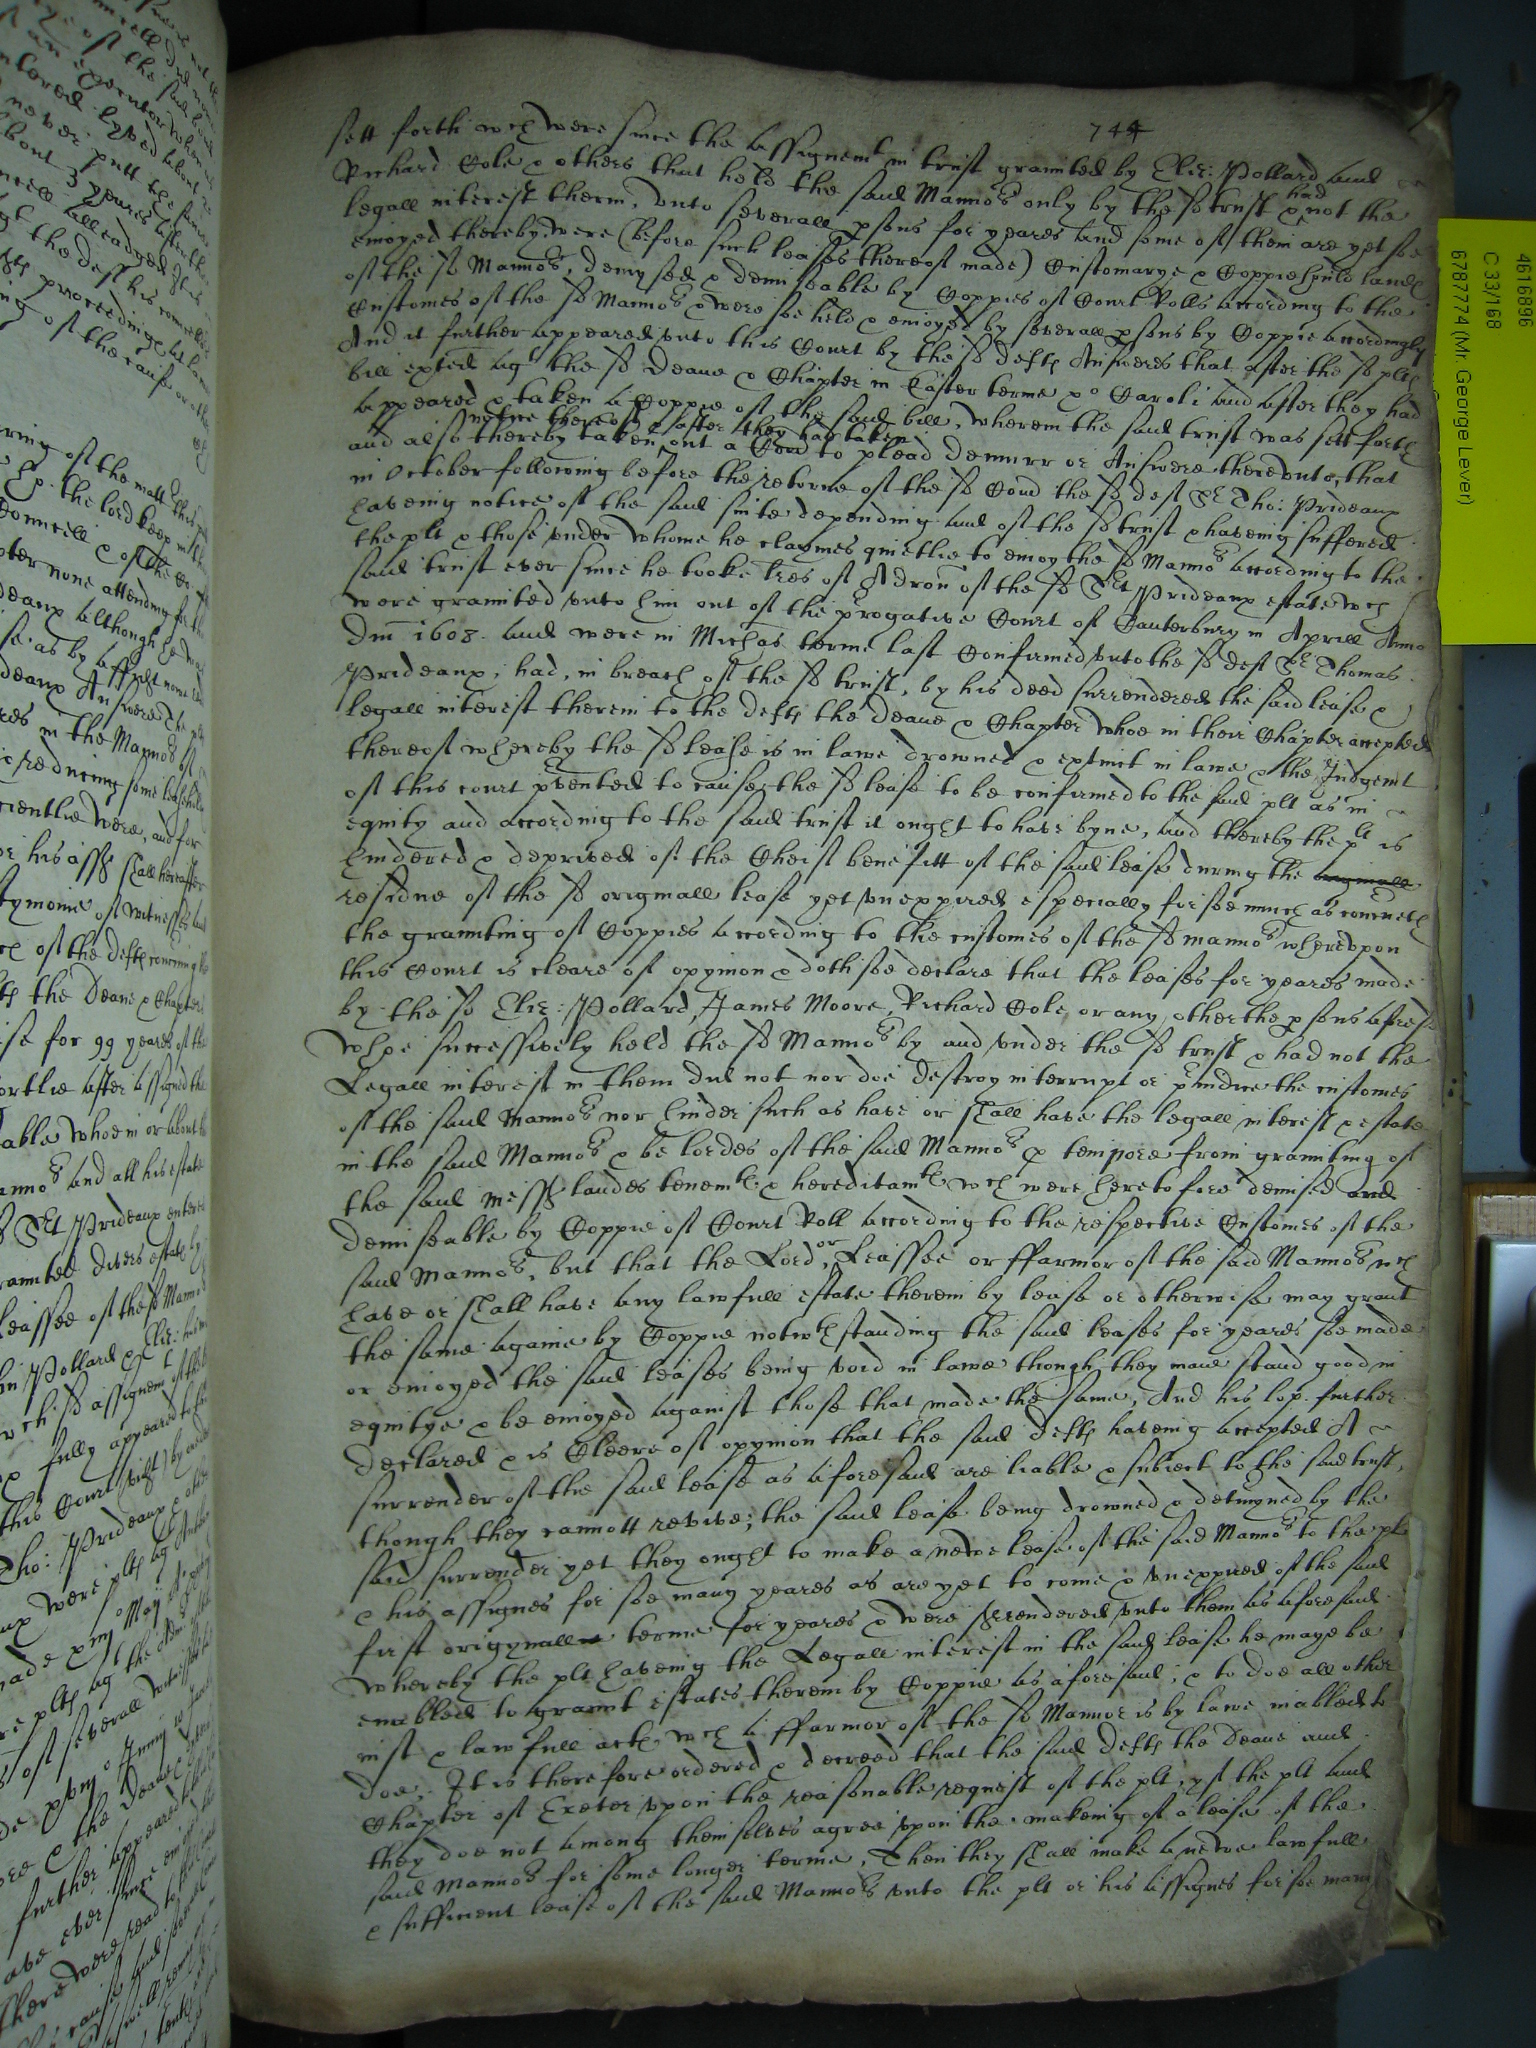 744
sett forth wch were since the Assignemt in trust graunted by Eliz: Pollard and
Richard Cole & others that held the said Mannors only by the sd trust & had not the
legall interest therin, unto severall psons for yeares and some of them are yet soe
enioyed thereby were (before such leases thereof made) Customarye & Coppiehould lands
of the sd Mannors, demysed & demiseable by Coppies of Court Rolls according to the
Customes of the sd Mannors & were soe held & enioyed by severall psons by Coppie accordingly
And it further appeared unto this Court by the sd defts Answeres that after the sd plts
bill exhited agt the sd Deane & Chapter in Easter terme po Caroli and after they had
appeared & taken a Coppie of the said bill, wherein the said trust was sett forth
and also thereby taken notice thereof & after they had taken out a Comd to plead demurr or Answere thereunto, that
in October following before the retorne of the sd Comd the sd deft Sr Tho: Prideaux
haveing notice of the said suite depending and of the sd trust & haveing suffered
the plt & those under whome he claymes quietlie to enioy the sd Mannors according to the
said trust ever since he tooke lres of Adron of the sd Sr Prideaux estate wch
were graunted unto him out of the progative Court of Canterbury in Aprill Anno
Dni 1608. and were in Michas terme last Confirmed unto the sd deft Sr Thomas
Prideaux, had, in breach of the sd trust, by his deed surrendered the said lease &
legall interest therein to the defts the Deane & Chapter whoe in their Chapter accepted
thereof whereby the sd lease is in lawe drowned & extinct in lawe & the Iudgemt
of this court pvented to cause the sd lease to be confirmed to the said plt as in
equity and according to the said trust it ought to have byne, and thereby the plt is
hindered & deprived of the Cheif benefitt of the said lease during the originall
residue of the sd originall lease yet unexpired especially for soe much as concneth
the graunting of Coppies according to the customes of the sd mannors whereupon
this Court is cleare of opynion & doth soe declare that the leases for yeares made
by the sd Eliz: Pollard, James Moore, Richard Cole or any other the psons aforesd
whoe successively held the sd Mannors by and under the sd trust & had not the
Legall interest in them did not nor doe destroy interrupt or piudice the customes
of the said Mannors nor hinder such as have or shall have the legall interest & estate
in the said Mannors & be lordes of the said Mannors p tempore from graunting of
the said mess landes tenemts & hereditamts wch were heretofore demised and
demiseable by Coppie of Court Roll according to the respective Customes of the
said Mannors, but that the Lord, or Leassee or ffarmor of the said Mannors wch
have or shall have any lawfull estate therein by lease or otherwise may graunt
the same againe by Coppie notwthstanding the said leases for yeares soe made
or enioyed the said leases being void in lawe though they maye stand good in
equitye & be enioyed against those that made the same, And his lop. further
declared & is Cleere of opynion that the said defts haveing accepted A
surrender of the said lease as aforesaid are liable & subiect to the said trust,
though they cannott revive; the said lease being drowned & detmyned by the
said surrender yet they ought to make a newe lease of the said Mannors to the plt
& his assignes for soe many yeares as are yet to come & unexpired of the said
first origynall terme for yeares & were surrendered unto them as aforesaid
whereby the plt haveing the Legall interest in the said lease he maye be
enabled to graunt estates therein by Coppie as aforesaid; & to doe all other
iust & lawfull acts wch a ffarmor of the sd Mannor is by lawe inabled to
doe; It is therefore ordered & decreed that the said defts the Deane and
Chapter of Exeter upon the reasonable request of the plt, yf the plt and
they doe not among themselves agree upon the makeing of a lease of the
said Mannors for some longer terme, Then they shall make a newe lawfull
& sufficient lease of the said Mannors unto the plt or his Assignes for soe many
4616896
C 33/168
6787774 (Mr. George Lever)